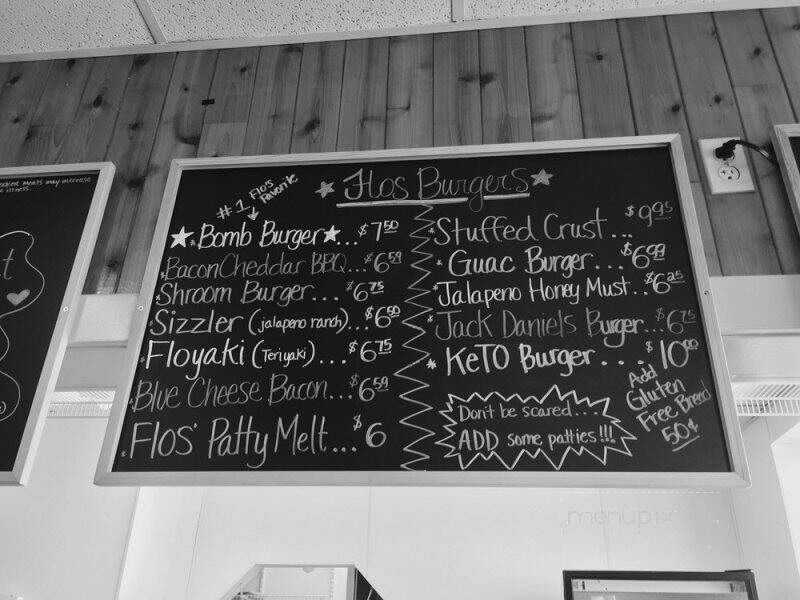 ocient meats may increase
e illness.
#1 Flo's
Favorite
Flos Burgers
Bomb Burger... $7.50
Bacon Cheddar BBQ... $6.59
Shroom Burger... $6.75
Sizzler (jalapeno ranch)... $6.50
Floyaki (Teriyaki)... $6.75
Blue Cheese Bacon... $6.59
FLOS' Patty Melt... $6
Stuffed Crust... $9.95
Guac Burger... $6.99
Jalapeno Honey Must.. $6.25
Jack Daniels Burger... $6.75
KeTO Burger.... $10.00
Add
Gluten
Free Bread
50¢
Don't be scared...
ADD some patties!!!
menupix